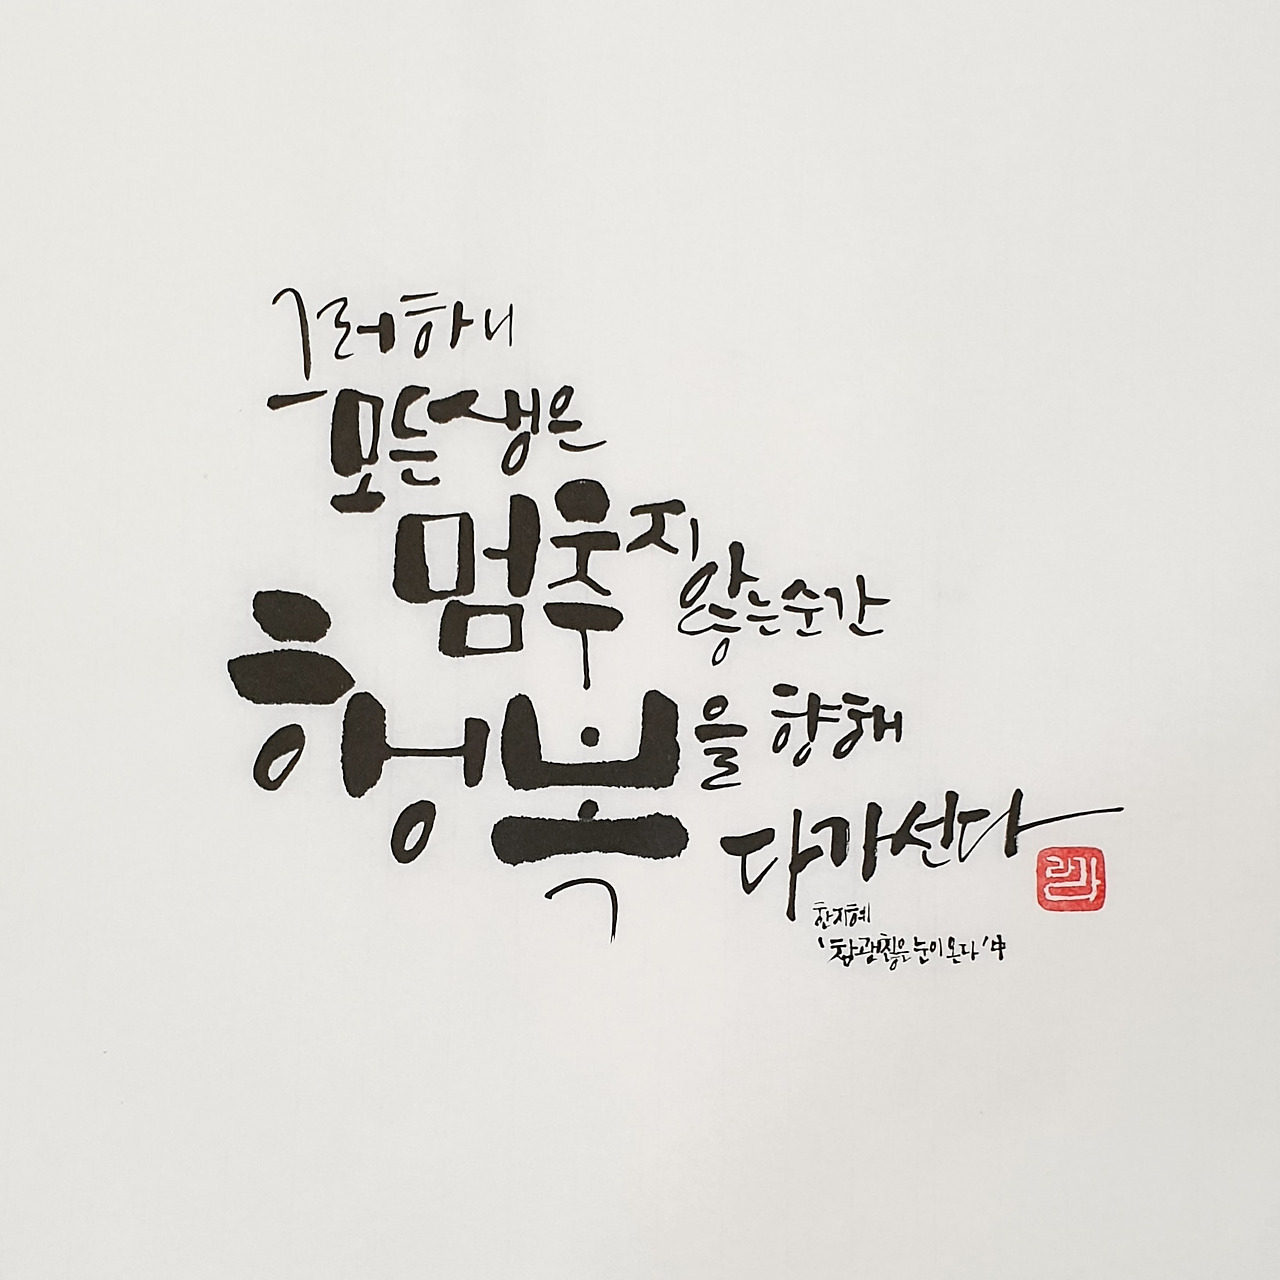 그러하니
모든 생은
멈추지
않는 순간
행복을 향해
다가선다
한지혜
'참 괜찮은 눈이 온다' 中